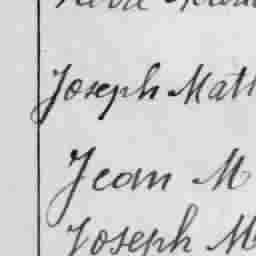 Joseph Matt
Jean M
Joseph M